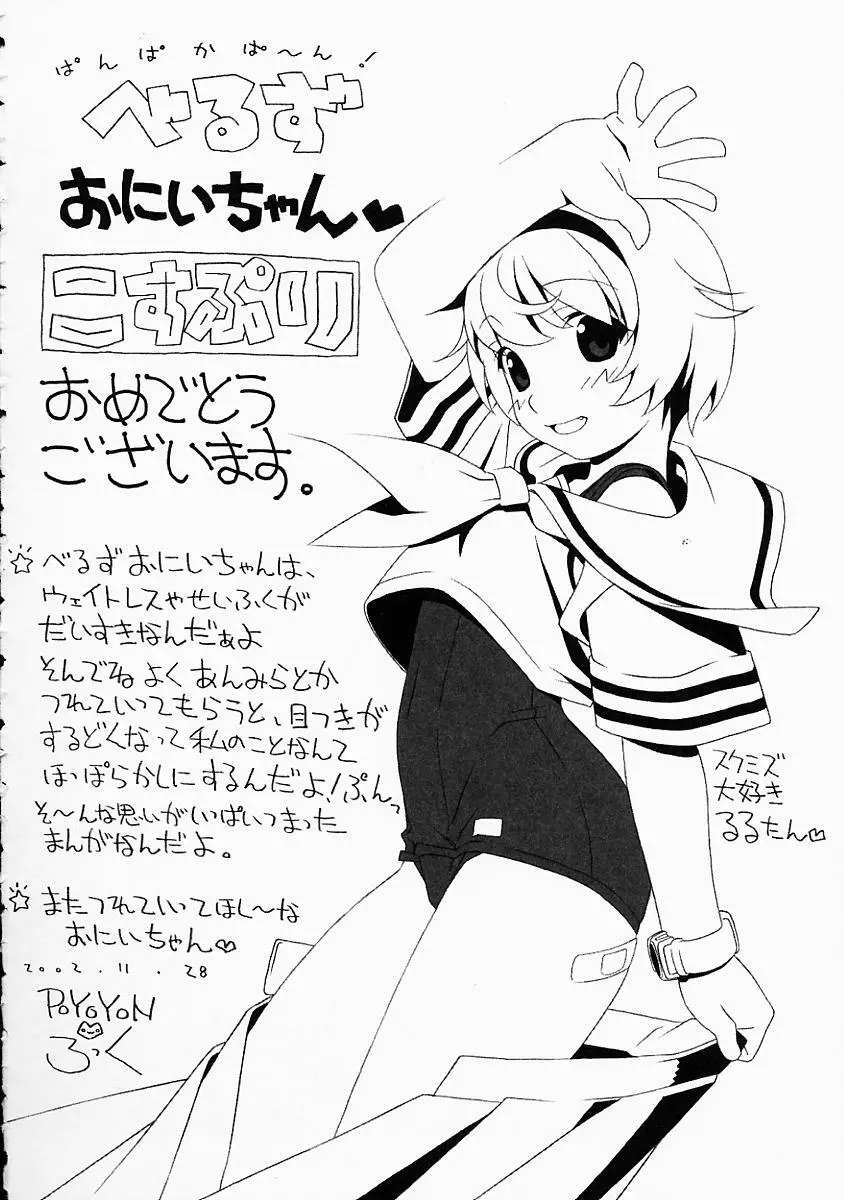 ぱんぱかぱ〜ん!
べるず
おにいちゃん♥
こすぷり
おめでとう
ございます。
☆べるずおにいちゃんは、
ウェイトレスやせいふくが
だいすきなんだぁよ
そんでね よく あんみらとか
つれていってもらうと、目つきが
するどくなって私のことなんて
ほっぽらかしにするんだよ!ぷんっ
そ〜んな思いがいっぱいつまった
まんがなんだよ。
☆またつれていってほし〜な
おにいちゃん♡
2002.11.28
POYOYON
ろっく
スクミズ
大好き
るるたん♡